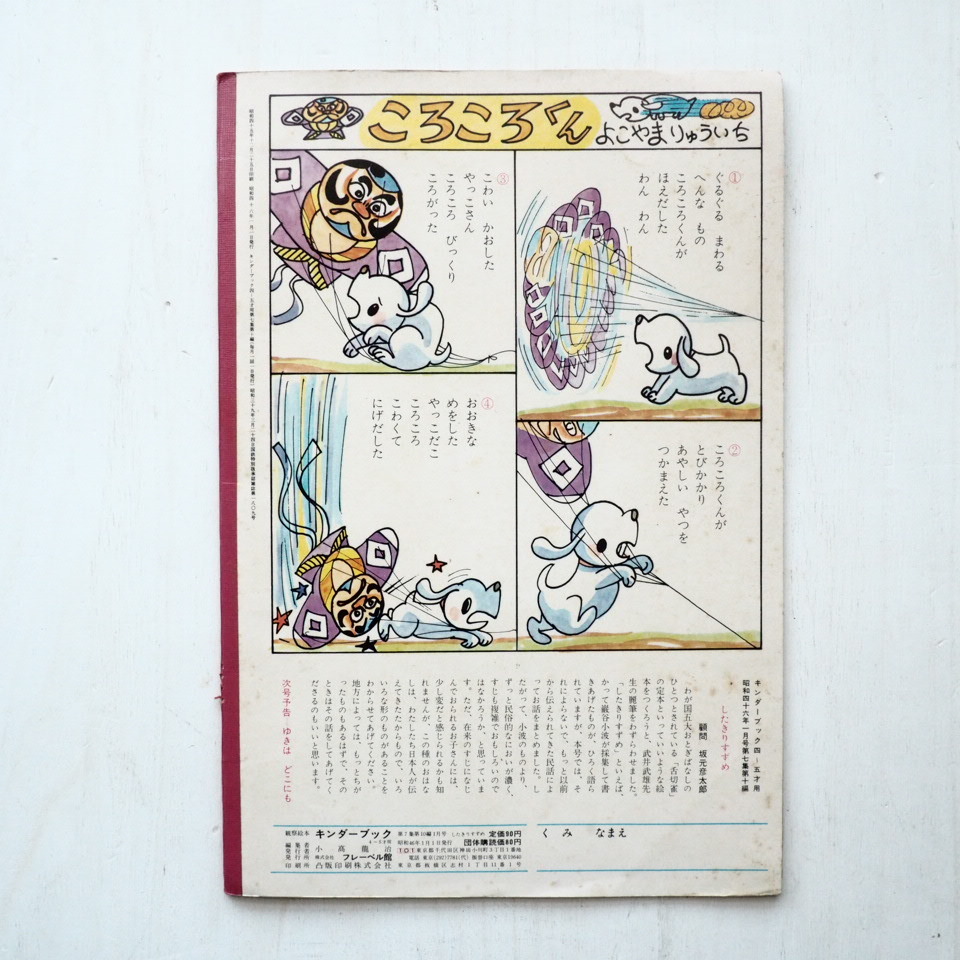 ころころくん
よこやまりゅういち
①
ぐるぐる まわる
へんな もの
ころころくんが
ほえだした
わん わん
②
ころころくんが
とびかかり
あやしい やつを
つかまえた
③
こわい かおした
やっこさん
ころころ びっくり
ころがった
④
おおきな
めをした
やっこだこ
ころころ
こわくて
にげだした
キンダーブック四―五才用
昭和四十六年一月号第七集第十編
したきりすずめ
顧問 坂元彦太郎
わが国五大おとぎばなしの
ひとつとされている「舌切雀」
の定本といっていいような絵
本をつくろうと、武井武雄先
生の麗筆をわずらわせました。
「したきりすずめ」といえば、
かって巌谷小波が採集して書
きあげたものが、ひろく語ら
れていますが、本号では、そ
れによらないで、もっと以前
から伝えられてきた民話によ
ってお話をまとめました。し
たがって、小波のものより、
ずっと民俗的なにおいが濃く、
すじも複雑でおもしろいので
はなかろうか、と思っていま
す。ただ、在来のすじになじ
んでおられるお子さんには、
少し変だと感じられるかも知
れませんが、この種のおはな
しは、わたしたち日本人が伝
えてきたたからもので、いろ
いろな形のものがあることを
わからせてあげてください。
地方によっては、もっとちが
ったものもあるはずで、その
ときはその話をしてあげてく
ださるのもいいと思います。
次号予告―ゆきは どこにも
観察絵本 キンダーブック 第7集第10編1月号 したきりすずめ 定価90円
4―5才用 昭和46年1月1日発行 団体購読価80円
編集者 発行者 小高龍治 101 東京都千代田区神田小川町3丁目1番地
発行所 株式会社 フレーベル館 電話 東京(292)7784(代) 振替口座 東京19640
印刷所 凸版印刷株式会社 東京都板橋区志村1丁目11番1号
くみ なまえ